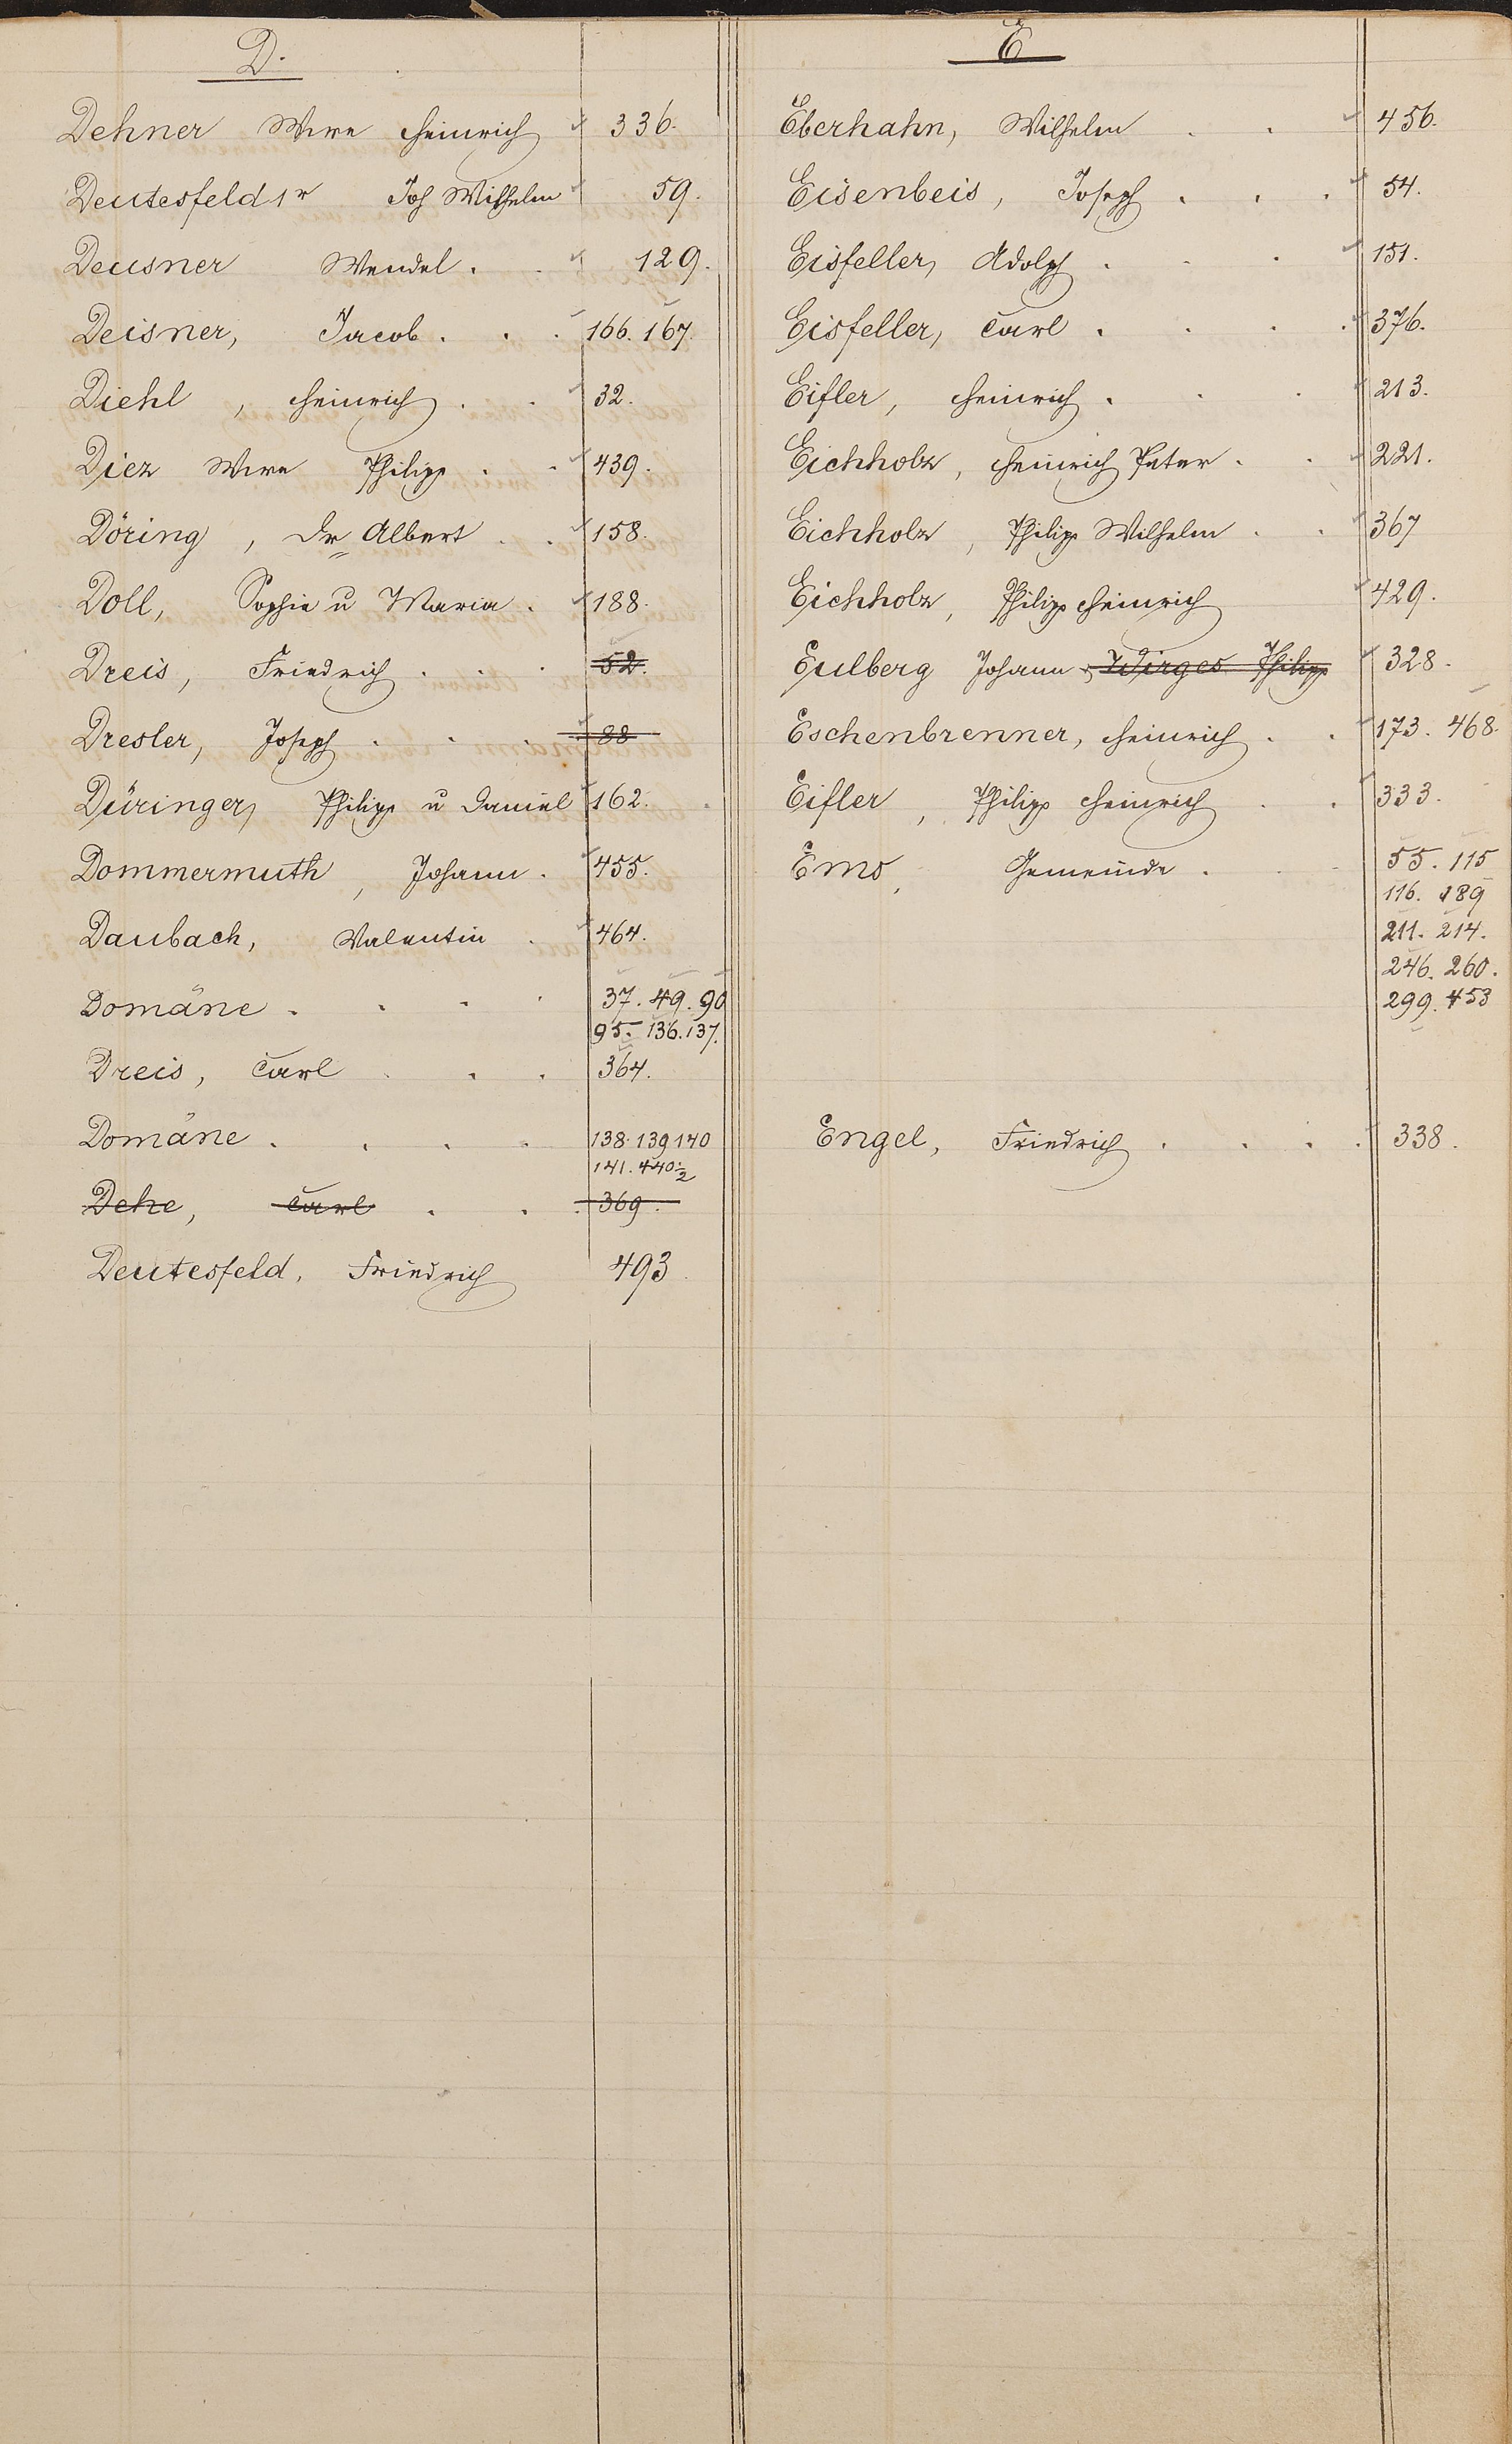 D.
Dehner Wwe Heinrich 336.
Deutesfeld 1r Joh Wilhelm 59.
Deusner Wendel . . 129.
Deisner, Jacob . . . 166. 167.
Diehl, Heinrich . . 32.
Diez Wwe Philipp . . 439.
Döring, Dr Albert . . 158.
Doll, Sophie u Maria . 188.
Dreis, Friedrich . . . 52.
Dresler, Joseph . . . 88
Düringer, Philipp u Daniel 162.
Dommermuth, Johann . 455.
Daubach, Valentin . 464.
Domäne . . . . 37. 49. 90
95. 136. 137.
Dreis, Carl . . . 364.
Domäne . . . . 138. 139 140
141. 440 1/2
Dehe, Carl . . . 369.
Deutesfeld, Friedrich 493
E
Eberhahn, Wilhelm . . 456.
Eisenbeis, Joseph . . . 54.
Eisfeller, Adolph . . . 151.
Eisfeller, Carl . . . . 376.
Eifler, Heinrich . . . 213.
Eichholz, Heinrich Peter . . 221.
Eichholz, Philipp Wilhelm . . 367
Eichholz, Philipp Heinrich 429.
Eulberg Johann Wirges Philipp 328.
Eschenbrenner, Heinrich . . 173. 468.
Eifler, Philipp Heinrich . . 333.
Ems, Gemeinde . . . 55. 115
116. 189
211. 214.
246. 260.
299. 453
Engel, Friedrich . . . . 338.